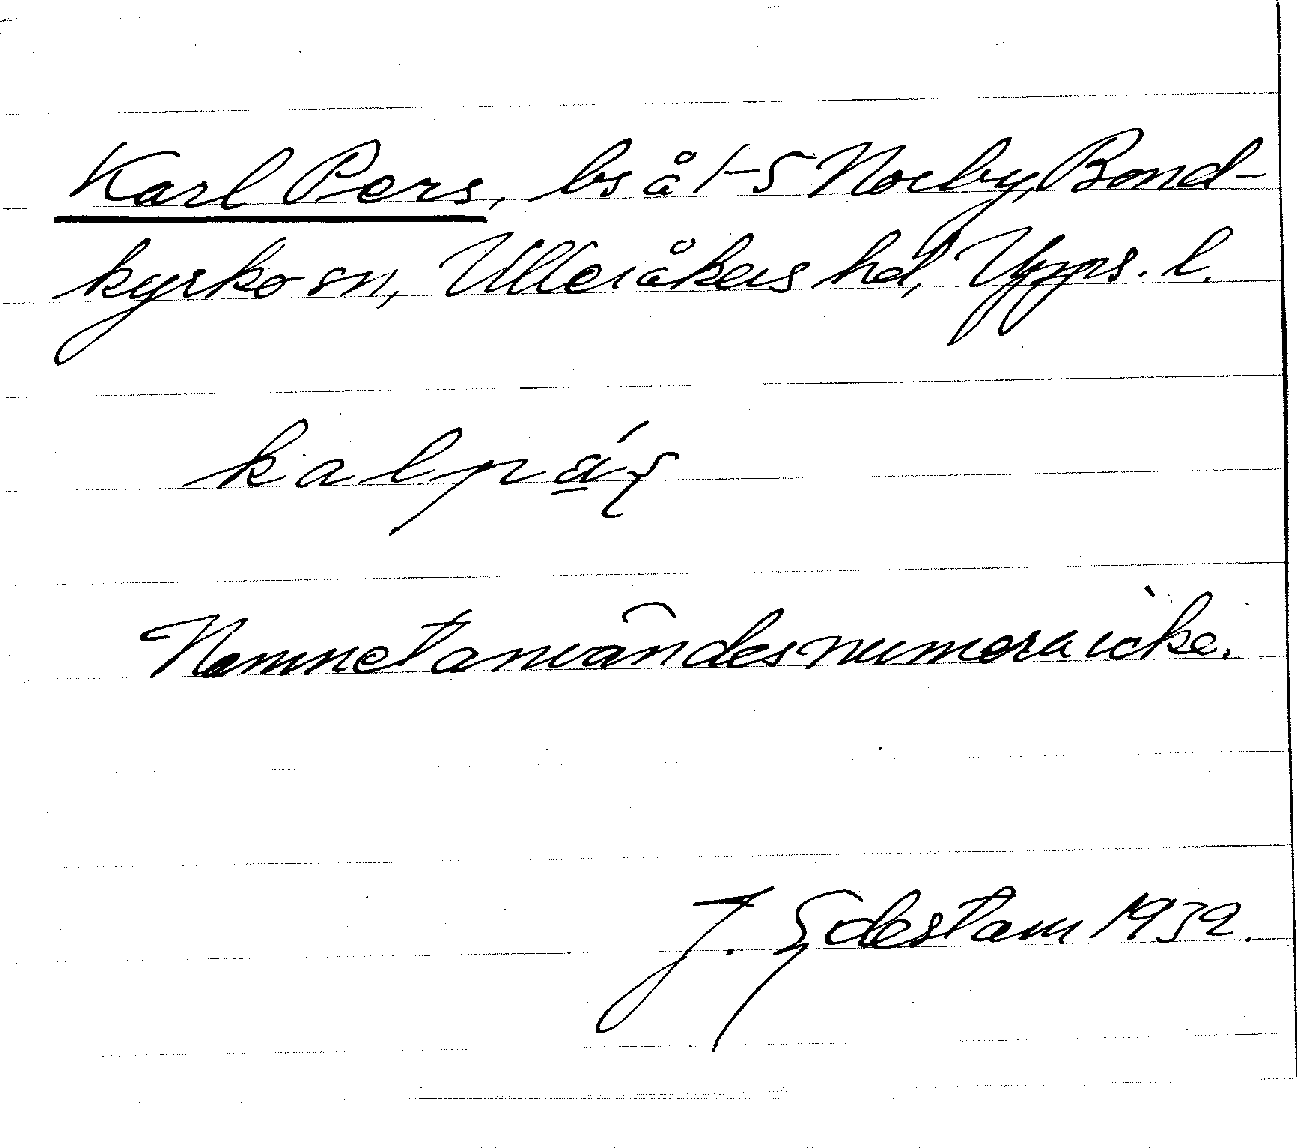 Karl Pers, bs å 1-5 Norby, Bond-
kyrko sn, Ulleråkers hd, Upps. l.
kalpä́ʂ
Namnet användes numera icke.
J. Götestam 1932.